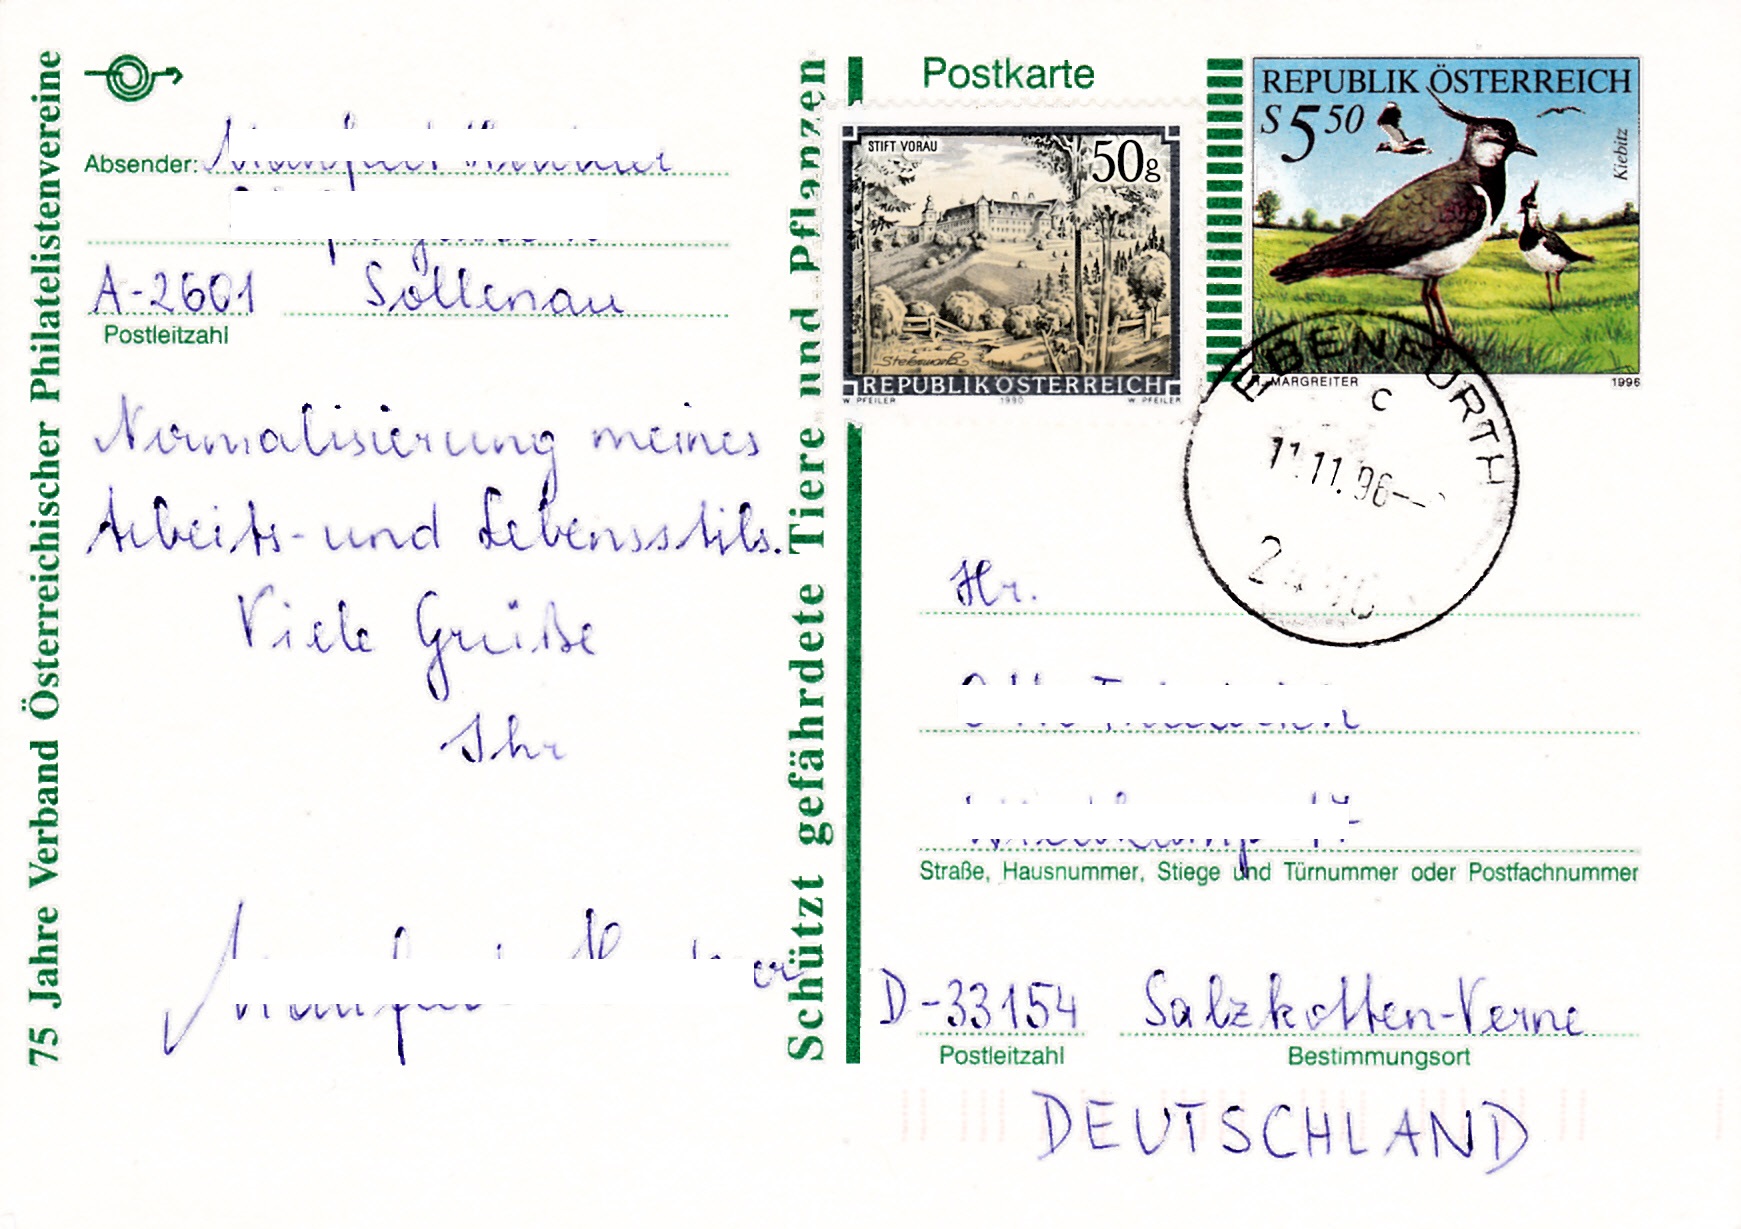 75 Jahre Verband Österreichischer Philatelistenvereine
Absender:
A-2601 Sollenau
Postleitzahl
Normalisierung meines
Arbeits- und Lebensstils.
Viele Grüße
Ihr
Schützt gefährdete Tiere und Pflanzen
Postkarte
STIFT VORAU
50g
Stebewald
REPUBLIK ÖSTERREICH
W. PFEILER 1990 W. PFEILER
REPUBLIK ÖSTERREICH
S 5 50
Kiebitz
MARGREITER 1996
EBENFURTH
C
11.11.96
Hr.
Straße, Hausnummer, Stiege und Türnummer oder Postfachnummer
D-33154 Salzkotten-Verne
Postleitzahl Bestimmungsort
DEUTSCHLAND